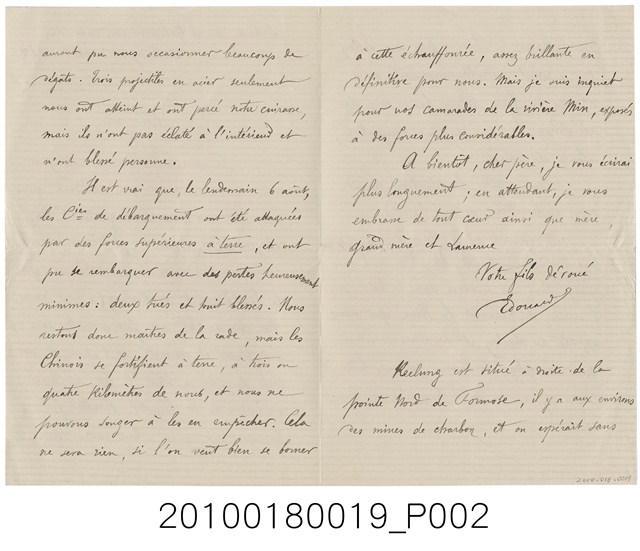 auront pu nous occasionner beaucoup de
dégats. Trois projectiles en acier seulement
nous ont atteint et ont percé notre cuirasse,
mais ils n'ont pas éclaté à l'intérieur et
n'ont blessé personne.
Il est vrai que, le lendemain 6 août,
les Cies de débarquement ont été attaquées
par des forces supérieures à terre, et ont
pu se rembarquer avec des pertes heureusement
minimes: deux tués et huit blessés. Nous
restons donc maîtres de la rade, mais les
Chinois se fortifient à terre, à trois ou
quatre kilomètres de nous, et nous ne
pouvons songer à les en empêcher. Cela
ne sera rien, si l'on veut bien se borner
à cette échauffourée, assez brillante en
définitive pour nous. Mais je suis inquiet
pour nos camarades de la rivière Min, exposés
à des forces plus considérables.
A bientôt, cher père, je vous écrirai
plus longuement; en attendant, je vous
embrasse de tout cœur ainsi que mère,
grand, mère et Laurence
Votre fils dévoué
Edouard
Keelung est situé à droite de la
pointe Nord de Formose, il y a aux environs
des mines de charbon, et on espérait sans
2010.018.0019
20100180019_P002